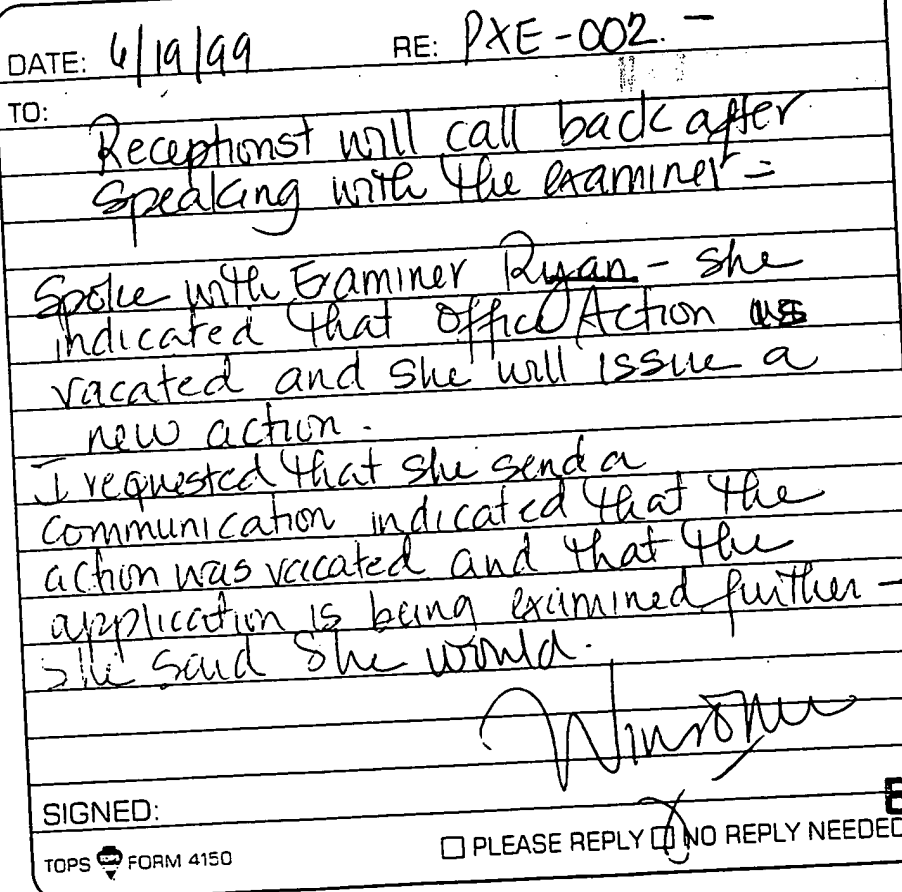 DATE: 6/19/99 RE: PXE-002. -
TO:
Receptionst will call back after
speaking with the examiner =
Spoke with Examiner Ryan - she
indicated that Office Action was
vacated and she will issue a
new action.
I requested that she send a
communication indicated that the
action was vacated and that the
application is being examined further -
she said she would.
Winsome
SIGNED:
TOPS FORM 4150 ☐ PLEASE REPLY ☒ NO REPLY NEEDED